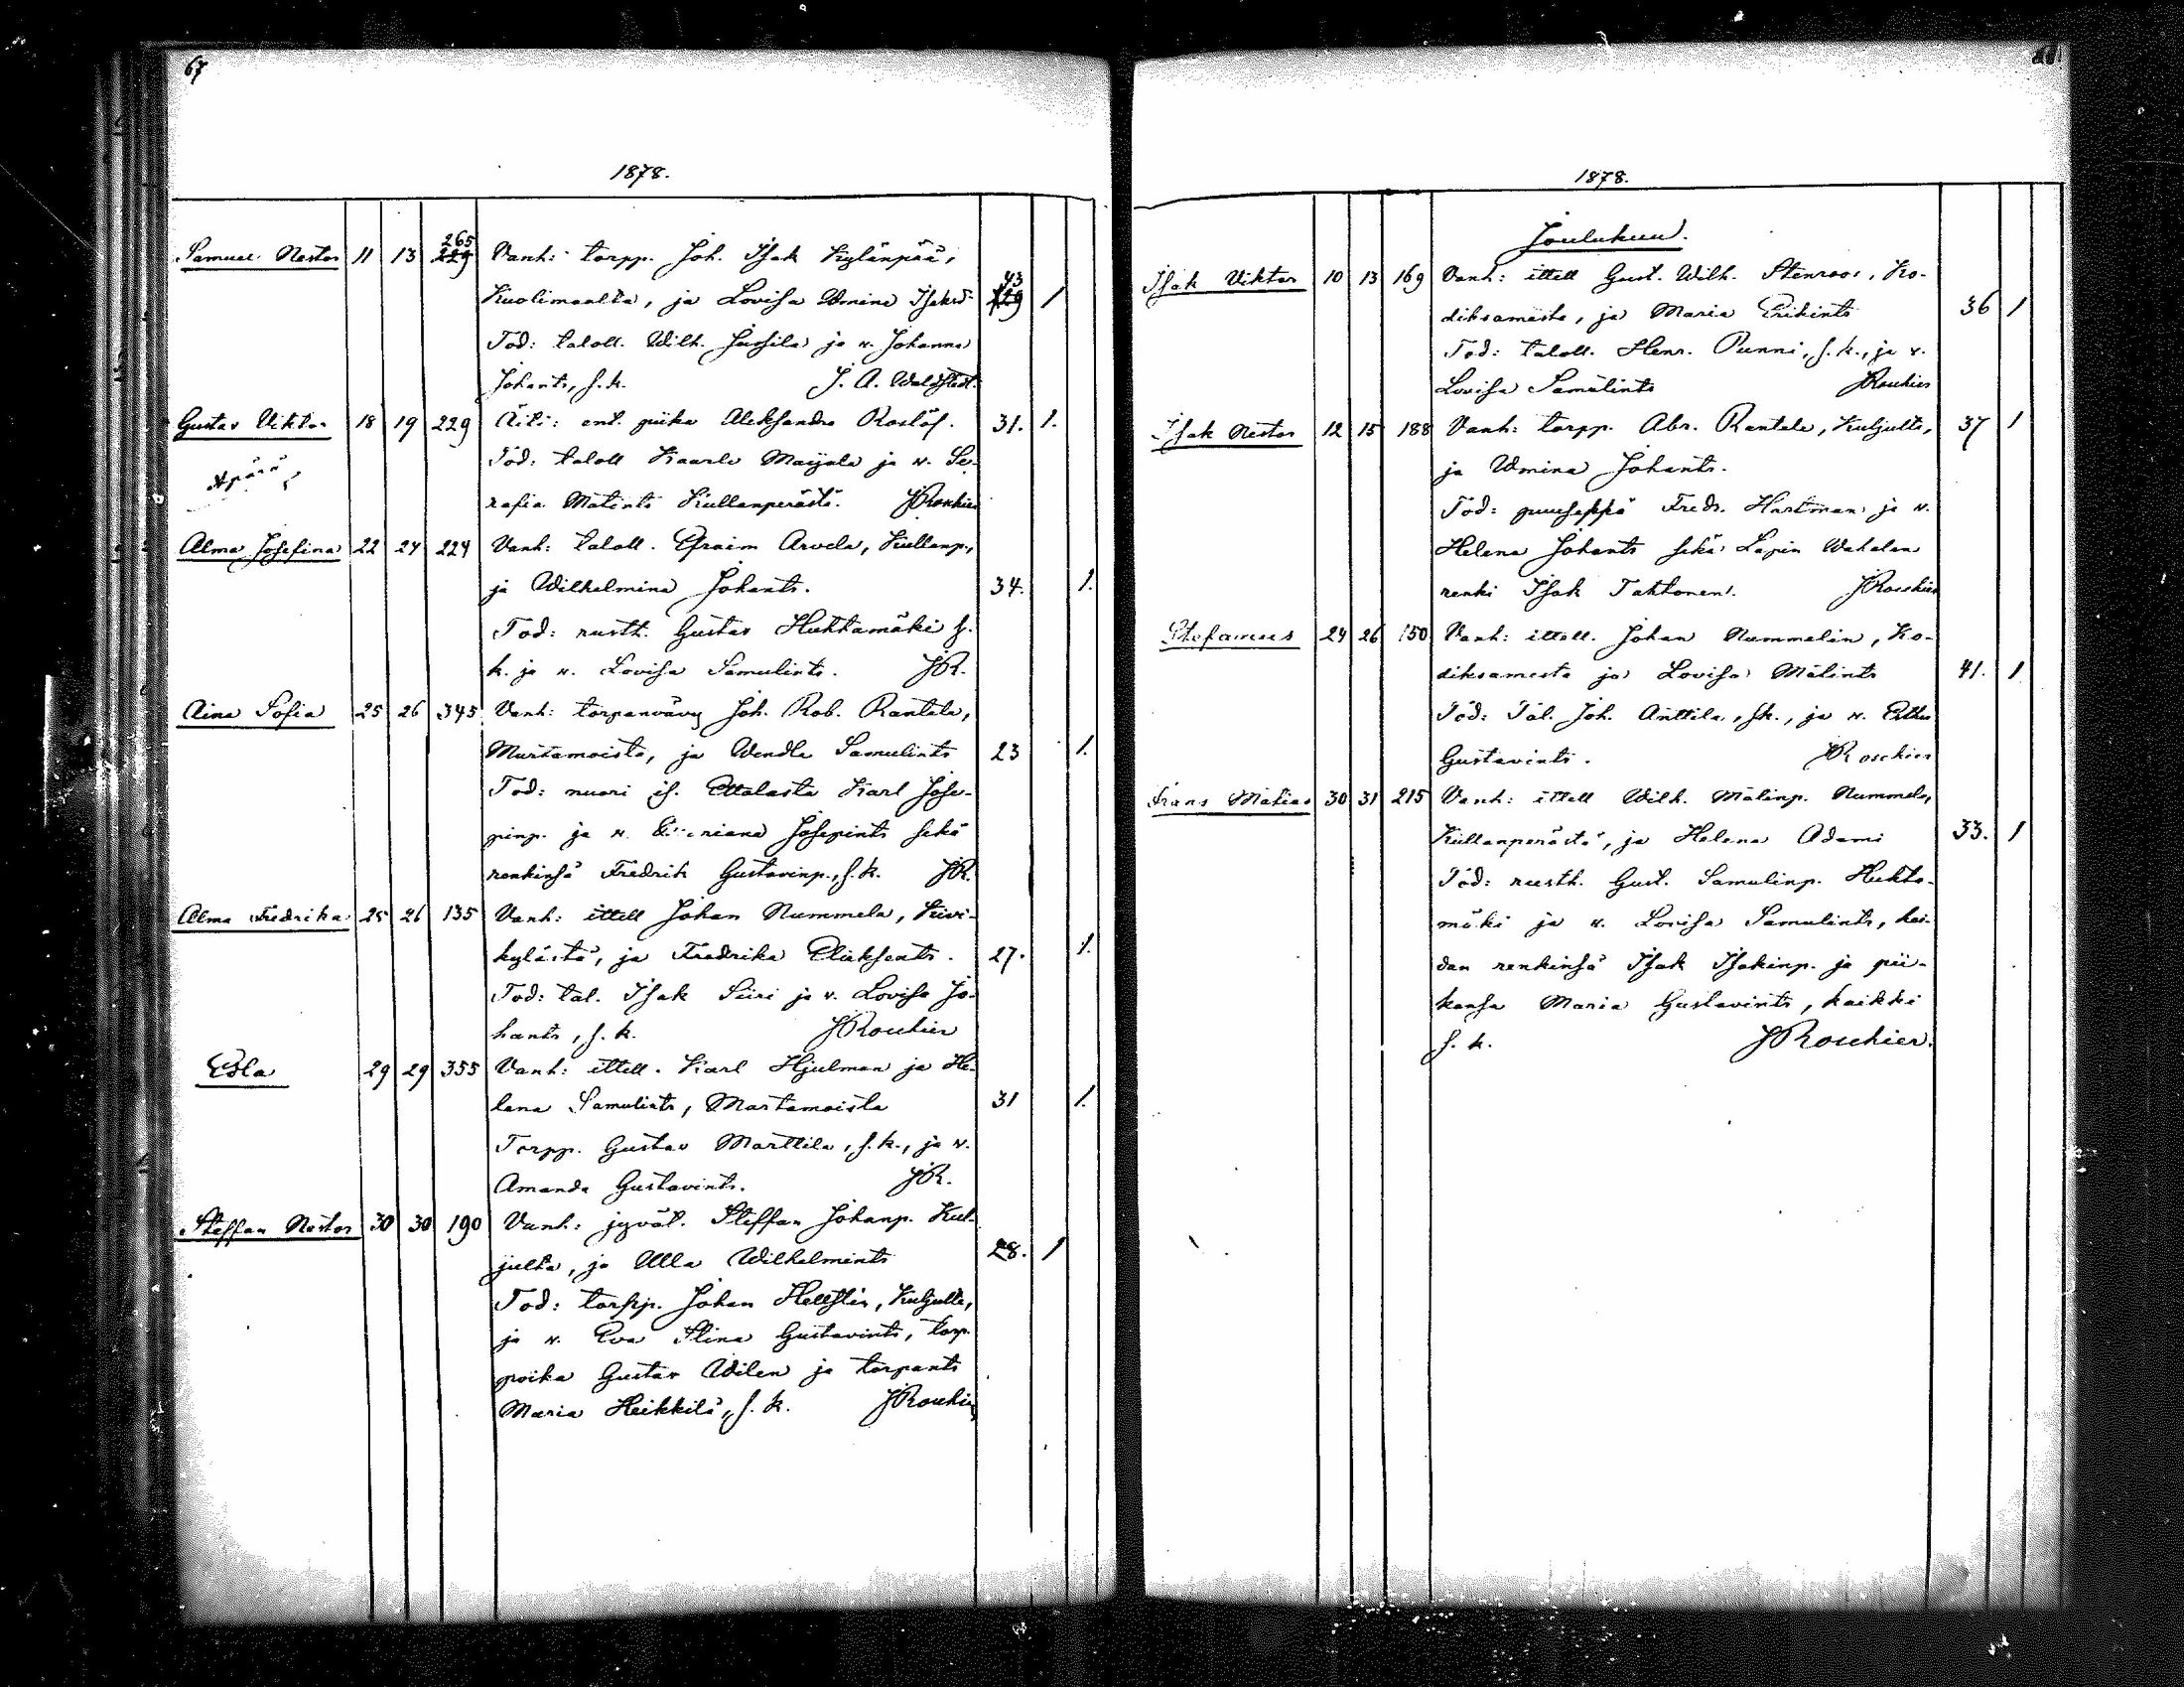 67
1878.
Samuel Nestor 11 13 265 229 Vanh: torpp. Joh. Isak Kylänpää,
Kuolimaalta, ja Lovisa Wmina Isaksd. 43 1
Tod: taloll. Wilh. Jussila ja v. Johanna
Johants, s. k. J. A. Waldstedt.
Gustav Viktor 18 19 229 Äiti: ent. piika Aleksandra Roslöf. 31. 1.
Äpärä, Tod: taloll Kaarle Maijala ja v. Se-
rafia Matints Kullanperästä. JRoschier
Alma Josefina 22 24 224 Vanh: taloll. Efraim Arvela, Kullanp.,
ja Wilhelmina Johants. 34. 1.
Tod: rusth. Gustav Huhtamäki s.
k. ja v. Lovisa Samulints. JR.
Aina Sofia 25 26 345 Vanh: torpanvävy Joh. Rob. Rantala,
Murtamoista, ja Wendla Samulints 23 1.
Tod: nuori is. Ettalasta Karl Jose-
pinp. ja v. Josepints sekä
renkinsä Fredrik Gustavinp., s. k. JR.
Alma Fredrika 25 26 135 Vanh: ittell Johan Nummela, Kivi-
kylästä, ja Fredrika Eliaksents. 27. 1.
Tod: tal. Isak Siiri ja v. Lovisa Jo-
hants, s. k. JRoschier
Edla 29 29 355 Vanh: ittell. Karl Hjulman ja He-
lena Samulints, Martamoista 31 1.
Torpp. Gustav Marttila, s. k., ja v.
Amanda Gustavints. JR.
Steffan Nestor 30 30 190 Vanh: jyvät. Steffan Johanp. Kul-
julta, ja Ulla Wilhelmints 28. 1
Tod: torpp. Johan Hellstén, Kuljulta,
ja v. Eva Stina Gustavints, torp.
poika Gustav Wilen ja torpants
Maria Heikkilä, s. k. JRoschier
1878.
Joulukuu.
Isak Viktor 10 13 169 Vanh: ittell Gust. Wilh. Stenroos, Ko-
diksamista, ja Maria Erikints 36 1
Tod: taloll. Henr. Punni, s. k., ja v.
Lovisa Samulints JRoschier
Isak Nestor 12 15 188 Vanh: torpp. Abr. Rantala, Kuljulta, 37 1
ja Wmina Johants.
Tod: puuseppä Fredr. Hartman ja v.
Helena Johants sekä Lapin Wahalan
renki Isak Tahtonen. JRoschier
Stefanus 24 26 150 Vanh: ittell. Johan Nummelin, Ko-
diksamesta ja Lovisa Matints 41. 1
Tod: Tal. Joh. Anttila, s. k., ja v. Esther
Gustavints. JRoschier
Frans Matias 30 31 215 Vanh: ittell Wilh. Matinp. Nummela,
Kullanperästä, ja Helena Adami 33. 1
Tod: rusth. Gust. Samulinp. Huhta-
mäki ja v. Lovisa Samulints, hei-
dan renkinsä Isak Isakinp. ja pii-
kansa Maria Gustavints, kaikki
s. k. JRoschier.